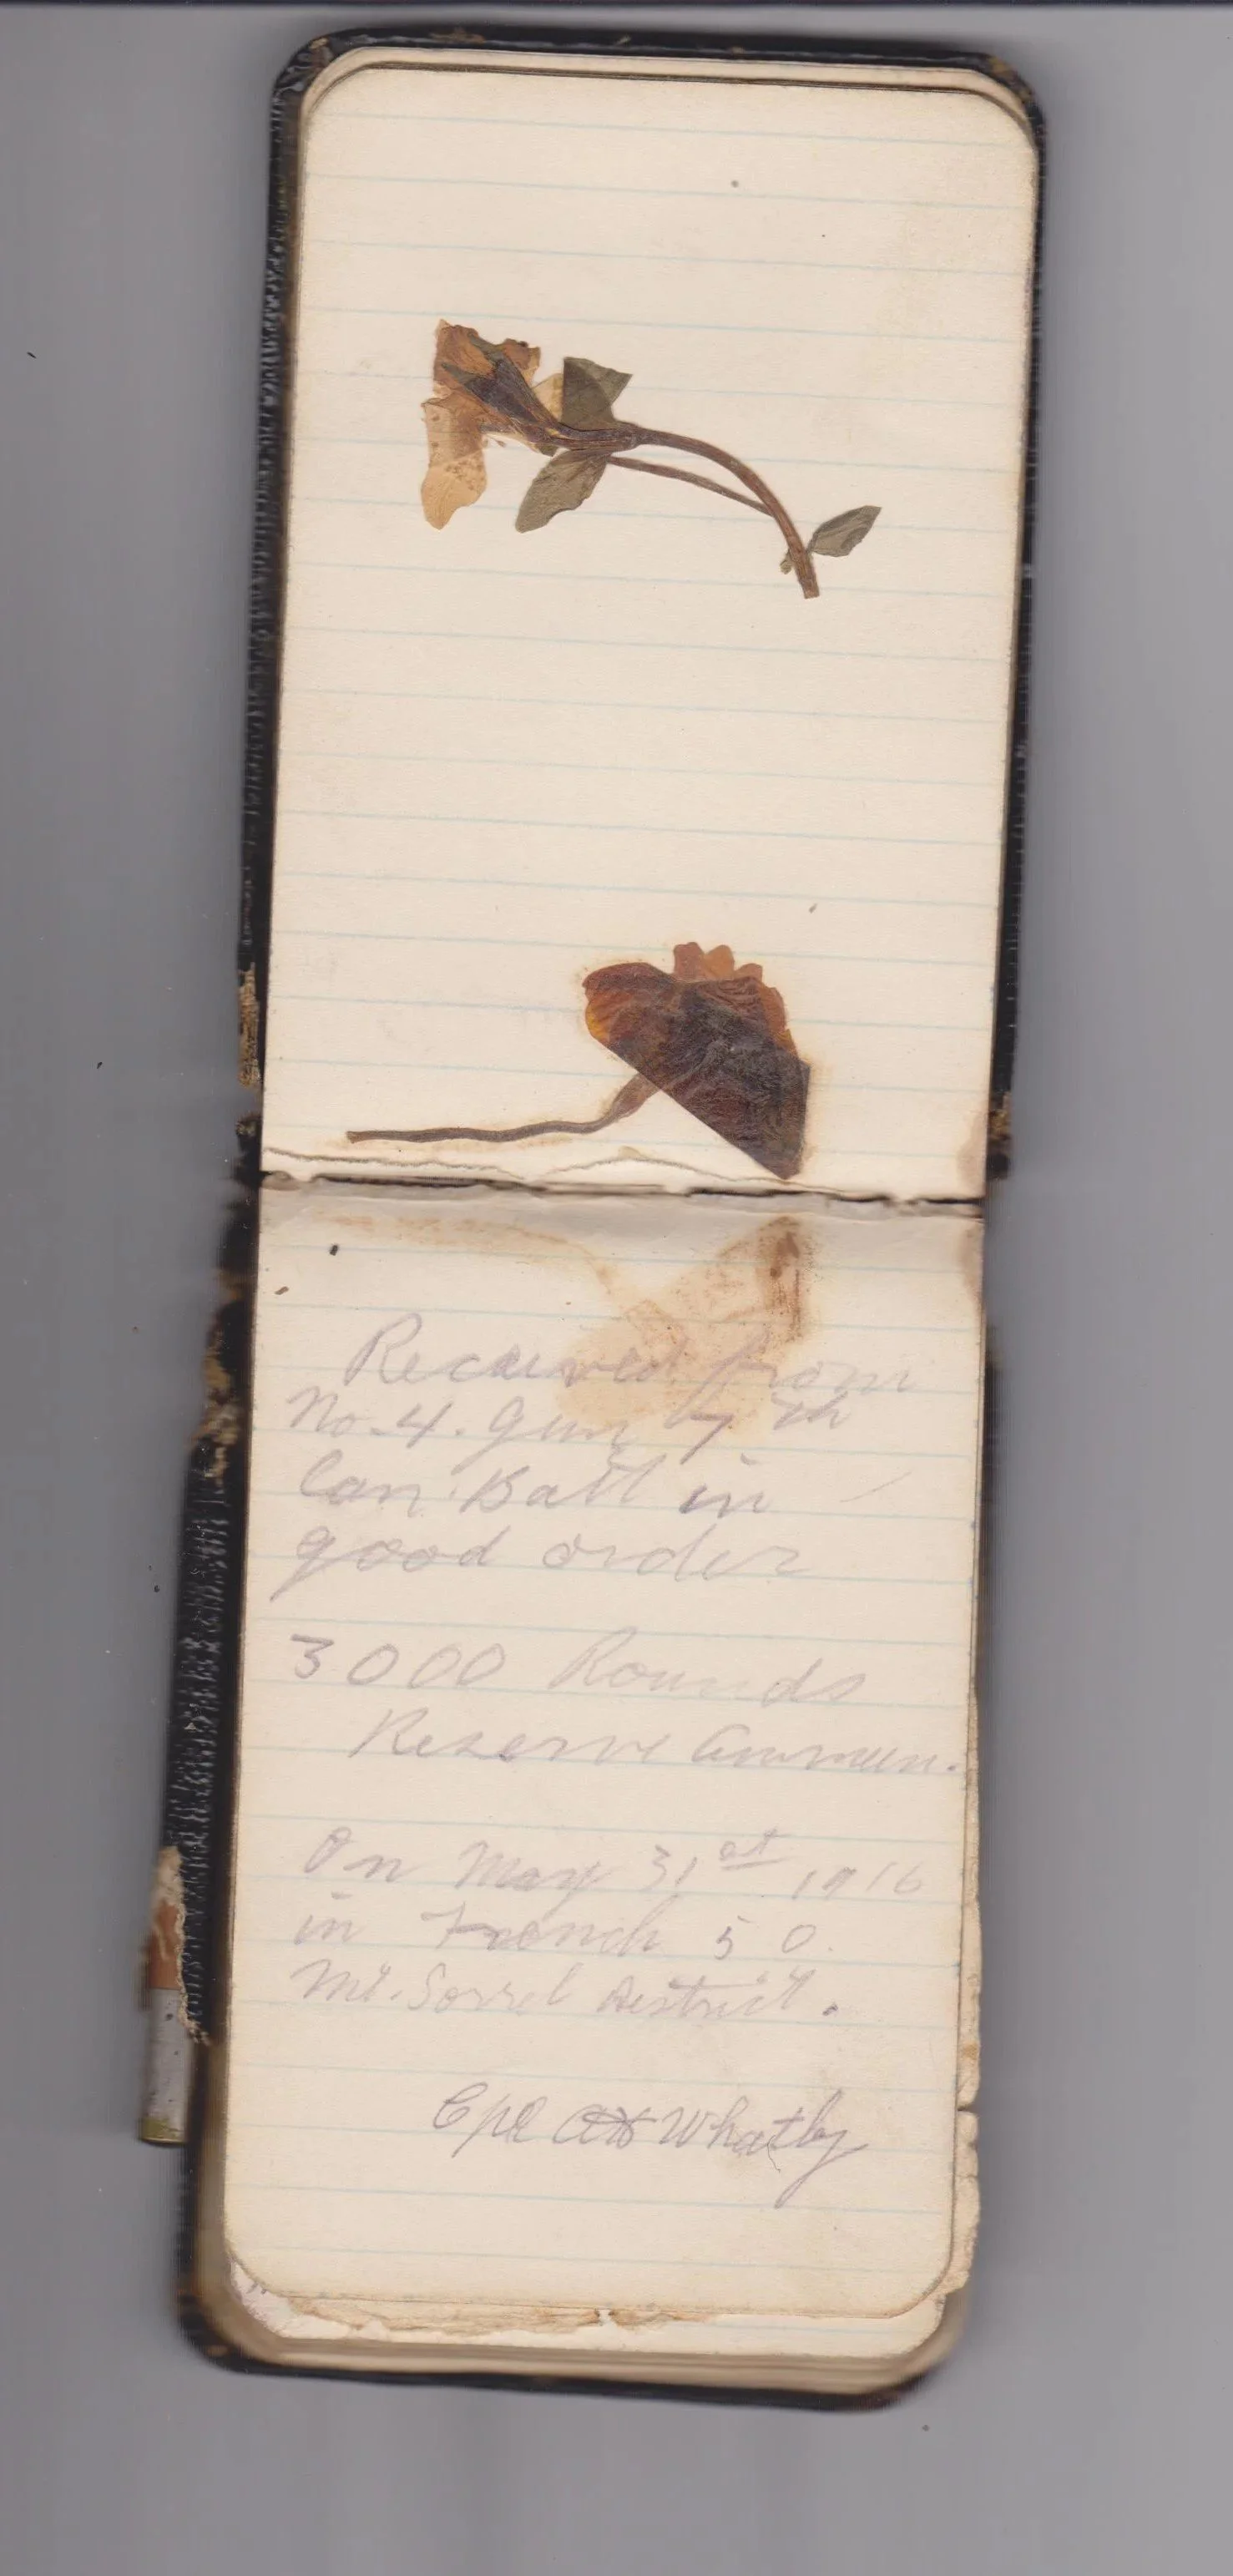 Received from
No. 4. Gun 7th
Can. Batt in
good order
3000 Rounds
Reserve Ammun.
On May 31st 1916
in Trench 50.
Mt. Sorrel District.
Cpl Whatley